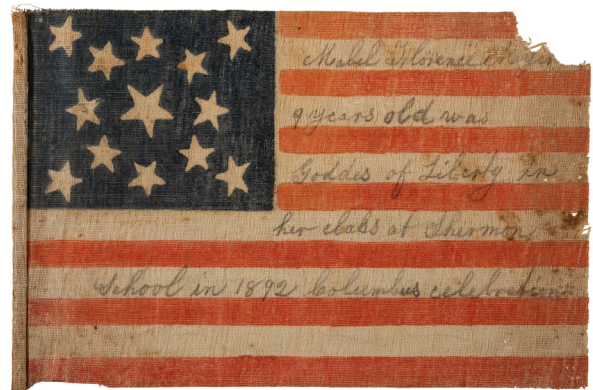 Mabel Florence
9 years old was
Goddes of Liberty in
her class at Shermon
School in 1892 Columbus celebration